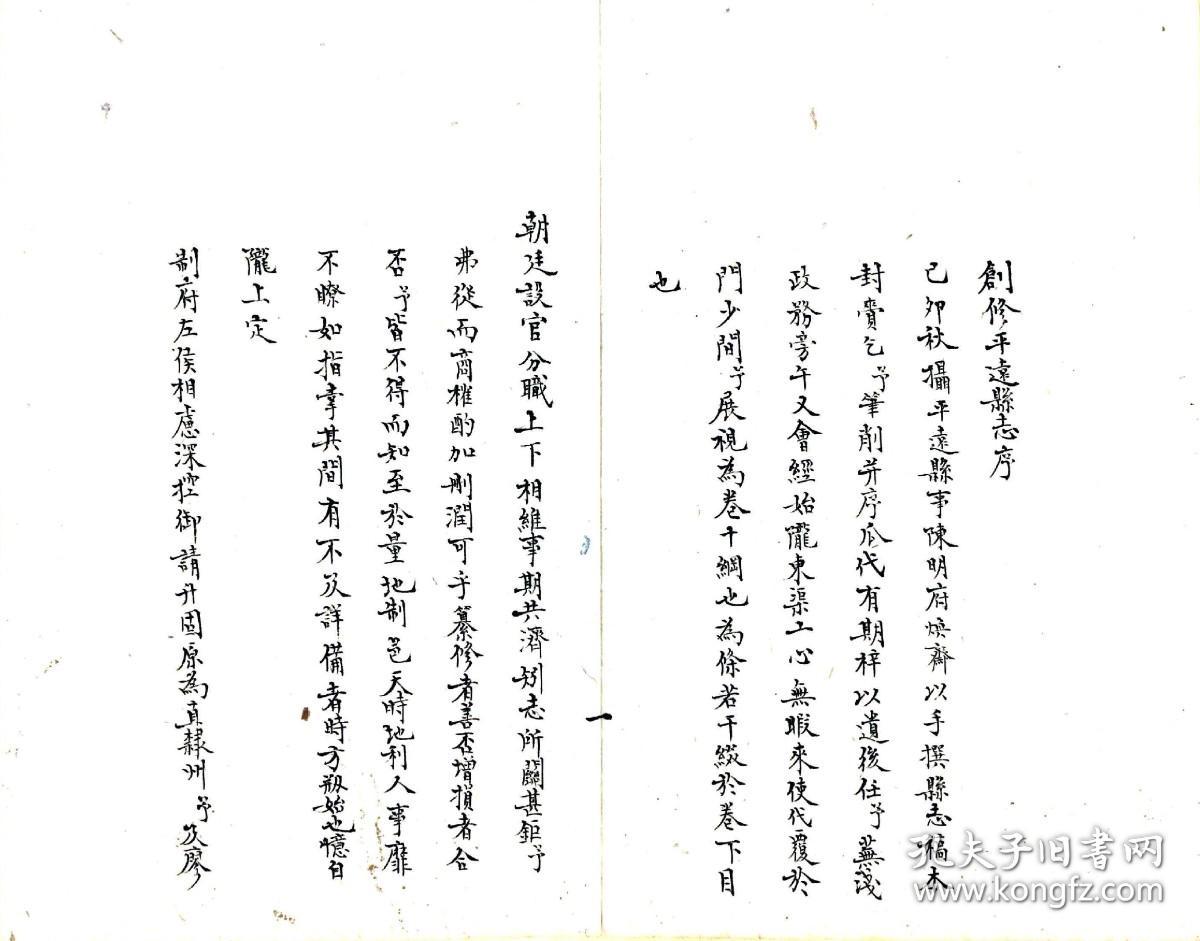 創修平遠縣志序
己卯秋攝平遠縣事陳明府煥齋以手撰縣志稿本
封賫乞予筆削并序瓜代有期梓以遺後任予蕪淺
政務旁午又會經始隴東渠工心無暇來使代覆於
門少間予展視為卷十綱也為條若干綴於卷下目
也
朝廷設官分職上下相維事期共濟矧志所關甚鉅予
弗從而商榷酌加刪潤可乎纂修者善否增損者合
否予皆不得而知至於量地制邑天時地利人事靡
不瞭如指掌其間有不及詳備者時方剏始也憶自
隴上定
制府左侯相慮深控御請升固原為直隸州予及廖
一
孔夫子旧书网
www.kongfz.com